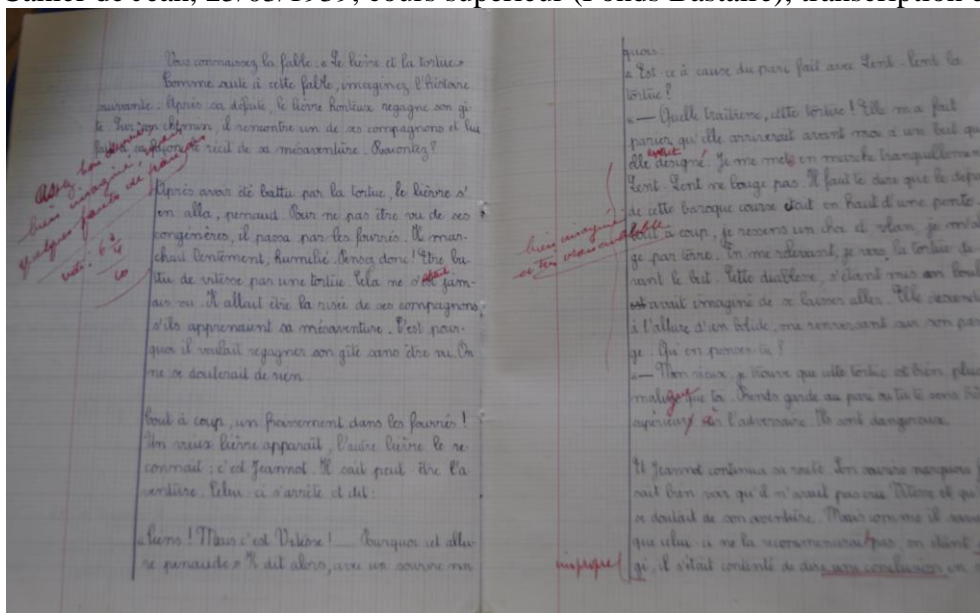 Cahier de Jean, 25/03/1939, cours supérieur (Fonds Bastaire), transcription
Vous connaissez la fable : « Le lièvre et la tortue »
Comme suite à cette fable, imaginez l'histoire
suivante : Après sa défaite, le lièvre honteux regagne son gî-
te. Sur son chemin, il rencontre un de ses compagnons et lui
fait le récit de sa mésaventure. Racontez ?
Assez bon devoir
bien imaginé, ayant
quelques fautes de français
Après avoir été battu par la tortue, le lièvre s'
en alla, penaud. Pour ne pas être vu de ses
congénères, il passa par les fourrés. Il mar-
chait lentement, humilié. Pensez donc ! Etre ba-
tu de vitesse par une tortue. Cela ne s'était jam-
ais vu. Il allait être la risée de ses compagnons,
s'ils apprenaient sa mésaventure. C'est pour-
quoi il voulait regagner son gîte sans être vu. On
ne se douterait de rien
Tout à coup, un froissement dans les fourrés !
Un vieux lièvre apparaît, l'autre lièvre le re-
connait : c'est Jeannot. Il sait peut être l'a-
venture. Celui-ci s'arrête et dit :
« Tiens ! Mais c'est Vitesse ! Pourquoi cet allu-
re penaude » Il dit alors, avec un sourire nar
quois :
« Est-ce à cause du pari fait avec Lent-Lent la
tortue ?
« — Quelle traîtresse, cette tortue ! Elle m'a fait
parier qu'elle arriverait avant moi à un but qu'
elle avait désigné. Je me mets en marche tranquillement
Lent-Lent ne bouge pas. Il faut te dire que le départ
de cette baroque course était en haut d'une pente.
Tout à coup, je ressens un choc et vlan, je m'al
ge par terre. En me relevant, je vois la tortue de
vant le but. Cette diablesse, s'étant mis en boule
avait imaginé de se laisser aller. Elle descend
à l'allure d'un bolide, me renversant sur son pas
ge. Qu'en penses-tu ?
bien imaginé
et très vraisemblable
« — Mon vieux, je trouve que cette tortue est bien plus
maligne que toi. Prends garde au pari où tu te sens
supérieur à l'adversaire. Ils sont dangereux.
Et Jeannot continua sa route. Son sourire narquois
sait bien voir qu'il n'avait pas cru Vitesse et qu'
se doutait de son aventure. Mais comme il savait
que celui-ci ne la recommencerait pas, en étant
gé, il s'était contenté de dire une conclusion en
impropre